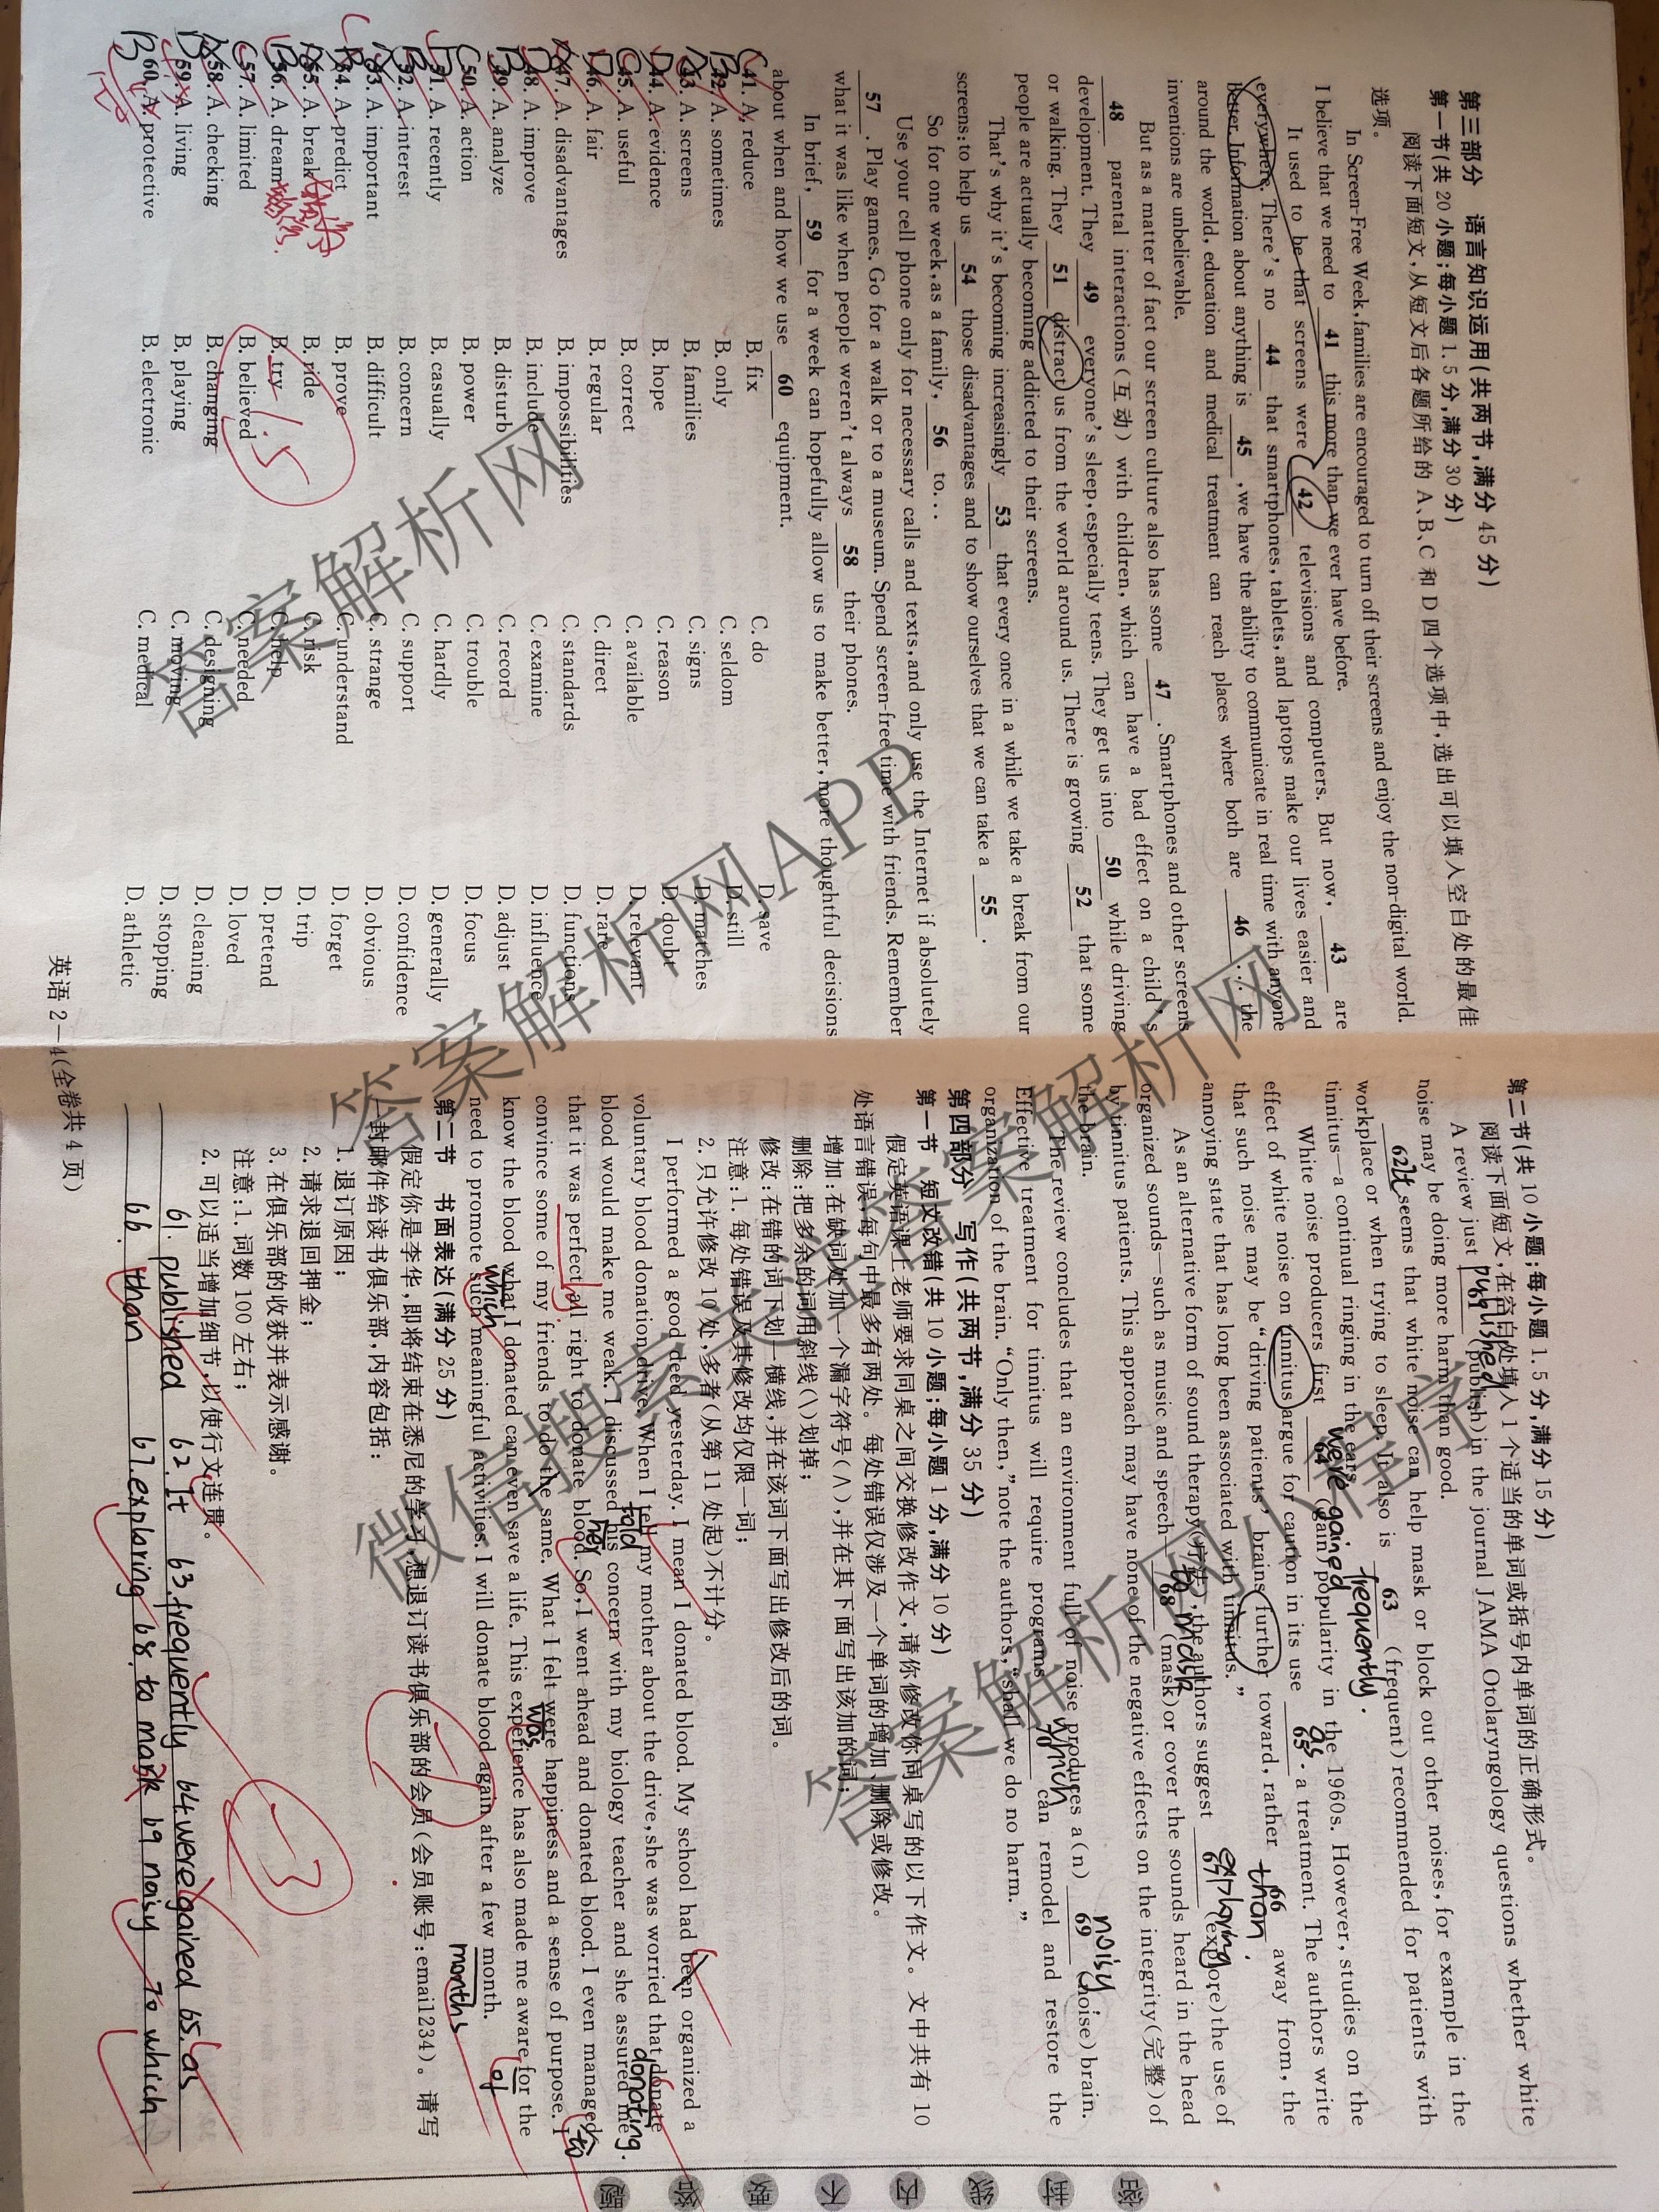 第三部分 语言知识运用(共两节,满分 45 分)
第一节(共 20 小题;每小题 1.5 分,满分 30 分)
阅读下面短文,从短文后各题所给的 A、B、C 和 D 四个选项中,选出可以填入空白处的最佳
选项。
In Screen-Free Week, families are encouraged to turn off their screens and enjoy the non-digital world.
I believe that we need to 41 this more than we ever have before.
It used to be that screens were 42 televisions and computers. But now, 43 are
everywhere. There's no 44 that smartphones, tablets, and laptops make our lives easier and
better. Information about anything is 45, we have the ability to communicate in real time with anyone
around the world, education and medical treatment can reach places where both are 46 ... the
inventions are unbelievable.
But as a matter of fact our screen culture also has some 47. Smartphones and other screens
48 parental interactions (互动) with children, which can have a bad effect on a child's
development. They 49 everyone's sleep, especially teens. They get us into 50 while driving
or walking. They 51 distract us from the world around us. There is growing 52 that some
people are actually becoming addicted to their screens.
That's why it's becoming increasingly 53 that every once in a while we take a break from our
screens: to help us 54 those disadvantages and to show ourselves that we can take a 55.
So for one week, as a family, 56 to...
Use your cell phone only for necessary calls and texts, and only use the Internet if absolutely
57. Play games. Go for a walk or to a museum. Spend screen-free time with friends. Remember
what it was like when people weren't always 58 their phones.
In brief, 59 for a week can hopefully allow us to make better, more thoughtful decisions
about when and how we use 60 equipment.
C 41. A. reduce B. fix C. do D. save
B 42. A. sometimes B. only C. seldom D. still
A 43. A. screens B. families C. signs D. matches
D 44. A. evidence B. hope C. reason D. doubt
C 45. A. useful B. correct C. available D. relevant
D 46. A. fair B. regular C. direct D. rare
A 47. A. disadvantages B. impossibilities C. standards D. functions
D 48. A. improve B. include C. examine D. influence
B 49. A. analyze B. disturb C. record D. adjust
C 50. A. action B. power C. trouble D. focus
51. A. recently B. casually C. hardly D. generally
B 52. A. interest B. concern C. support D. confidence
A 53. A. important B. difficult C. strange D. obvious
54. A. predict B. prove C. understand D. forget
55. A. break B. ride C. risk D. trip
B 56. A. dream B. try C. help D. pretend
C 57. A. limited B. believed C. needed D. loved
58. A. checking B. changing C. designing D. cleaning
59. A. living B. playing C. moving D. stopping
B 60. A. protective B. electronic C. medical D. athletic
-1.5
英语 2—4(全卷共 4 页)
第二节(共 10 小题;每小题 1.5 分,满分 15 分)
阅读下面短文,在空白处填入 1 个适当的单词或括号内单词的正确形式。
A review just 61 published (publish) in the journal JAMA Otolaryngology questions whether white
noise may be doing more harm than good.
62 It seems that white noise can help mask or block out other noises, for example in the
workplace or when trying to sleep. It also is 63 frequently (frequent) recommended for patients with
tinnitus—a continual ringing in the ears.
White noise producers first 64 were gained (gain) popularity in the 1960s. However, studies on the
effect of white noise on tinnitus argue for caution in its use 65 as a treatment. The authors write
that such noise may be "driving patients' brains further toward, rather 66 than away from, the
annoying state that has long been associated with tinnitus."
As an alternative form of sound therapy(疗法), the authors suggest 67 exploring (explore) the use of
organized sounds—such as music and speech 68 to mask (mask) or cover the sounds heard in the head
by tinnitus patients. This approach may have none of the negative effects on the integrity(完整) of
the brain.
The review concludes that an environment full of noise produces a(n) 69 noisy (noise) brain.
Effective treatment for tinnitus will require programs which can remodel and restore the
organization of the brain. "Only then," note the authors, "shall we do no harm."
第四部分 写作(共两节,满分 35 分)
第一节 短文改错(共 10 小题;每小题 1 分,满分 10 分)
假定英语课上老师要求同桌之间交换修改作文,请你修改你同桌写的以下作文。文中共有 10
处语言错误,每句中最多有两处。每处错误仅涉及一个单词的增加、删除或修改。
增加:在缺词处加一个漏字符号(∧),并在其下面写出该加的词;
删除:把多余的词用斜线(\)划掉;
修改:在错的词下划一横线,并在该词下面写出修改后的词。
注意:1. 每处错误及其修改均仅限一词;
2. 只允许修改 10 处,多者(从第 11 处起)不计分。
I performed a good deed yesterday. I mean I donated blood. My school had been organized a
voluntary blood donation drive. When I tell told my mother about the drive, she was worried that donate donating
blood would make me weak. I discussed his her concern with my biology teacher and she assured me
that it was perfect all right to donate blood. So, I went ahead and donated blood. I even managed to
convince some of my friends to do the same. What I felt were was happiness and a sense of purpose. I
know the blood what which I donated can even save a life. This experience has also made me aware for of the
need to promote such meaningful activities. I will donate blood again after a few month months.
第二节 书面表达(满分 25 分)
假定你是李华,即将结束在悉尼的学习,想退订读书俱乐部的会员(会员账号:email234)。请写
一封邮件给读书俱乐部,内容包括:
1. 退订原因;
2. 请求退回押金;
3. 在俱乐部的收获并表示感谢。
注意:1. 词数 100 左右;
2. 可以适当增加细节,以使行文连贯。
61. published 62. It 63. frequently 64. were gained 65. as
66. than 67. exploring 68. to mask 69 noisy 70 which
-3
答案解析网
答案解析网APP
微信搜索关注答案解析网
答案解析网小程序